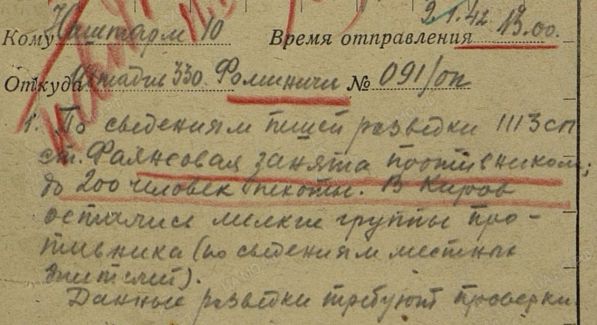 Кому Наштарм 10 Время отправления 21.1.42 13.00.
Откуда Штадив 330. Фоминичи № 091/оп
1. По сведениям пешей разведки 1113 сп
ст. Фаянсовая занята противником;
до 200 человек пехоты. В Киров
остались мелкие группы про-
тивника (по сведениям местных
жителей).
Данные разведки требуют проверки.